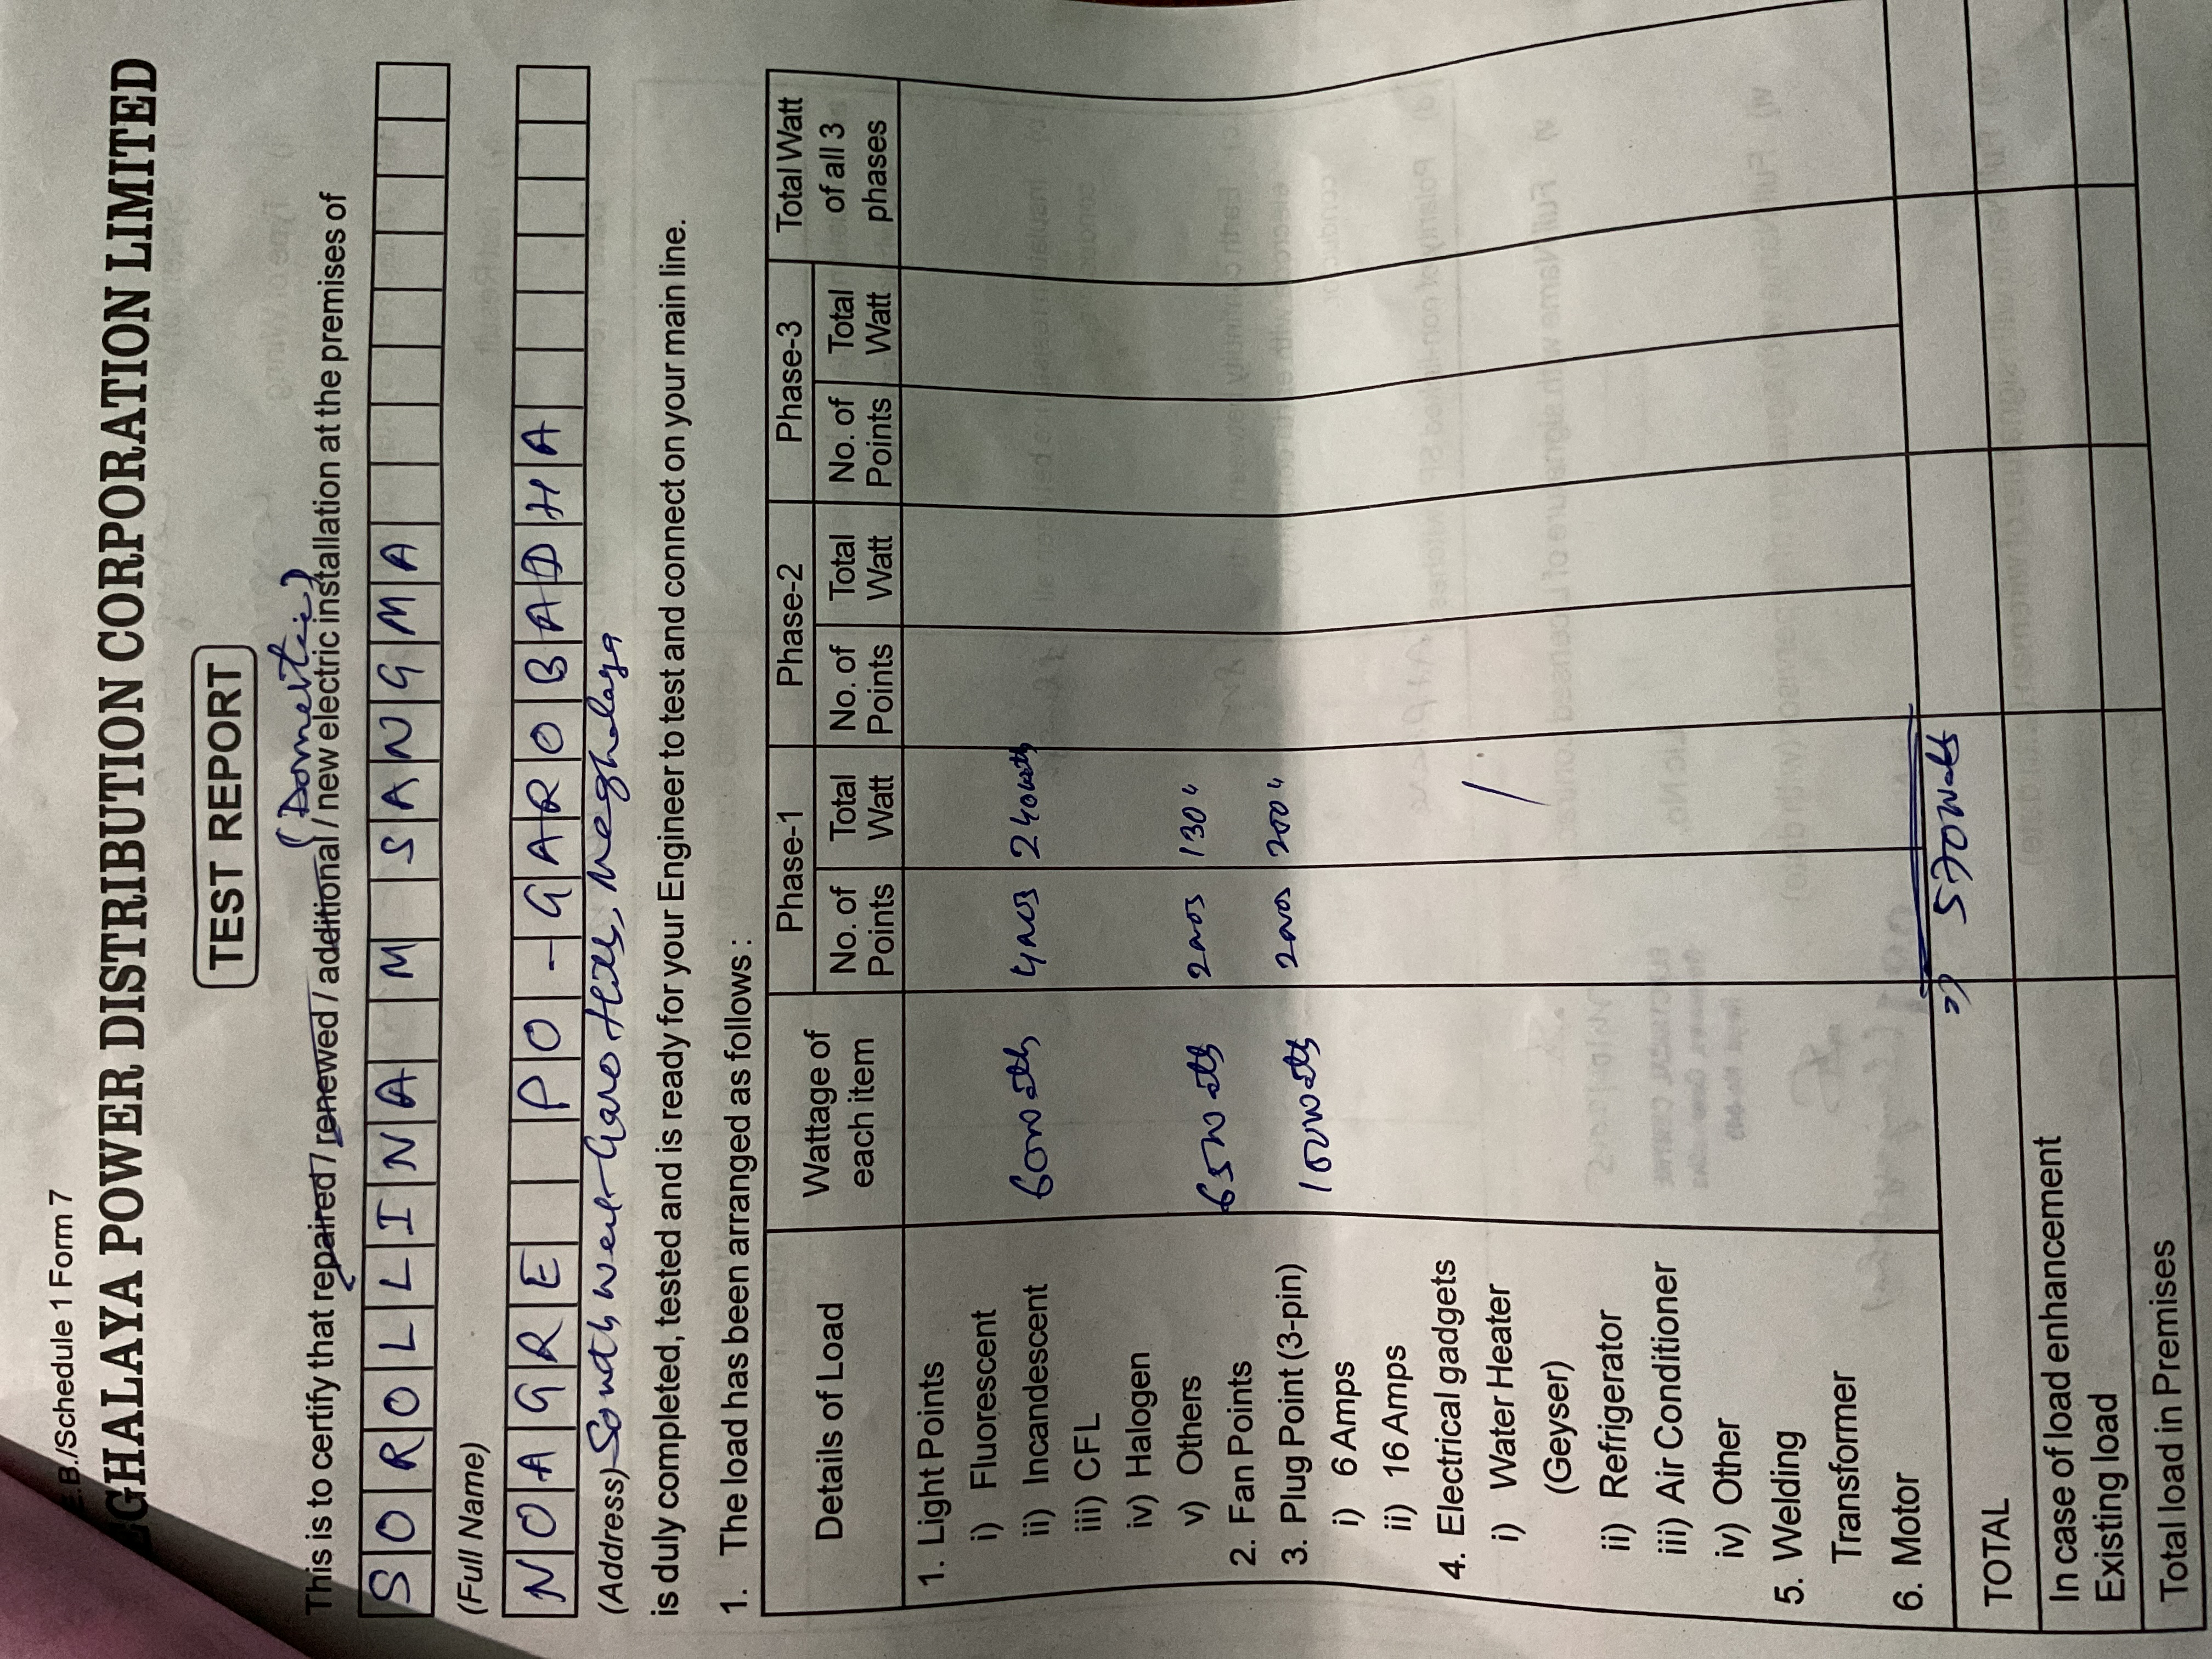 E.B./Schedule 1 Form 7
EGHALAYA POWER DISTRIBUTION CORPORATION LIMITED
TEST REPORT
(Domestic)
This is to certify that repaired / renewed / additional / new electric installation at the premises of
SOROLLINA M SANGMA
(Full Name)
NOAGRE PO-GAROBADHA
(Address) South West Garo Hills, Meghalaya
is duly completed, tested and is ready for your Engineer to test and connect on your main line.
1. The load has been arranged as follows :
Details of Load Wattage of each item Phase-1 Phase-2 Phase-3 Total Watt of all 3 phases
No. of Points Total Watt No. of Points Total Watt No. of Points Total Watt
1. Light Points
i) Fluorescent
ii) Incandescent 60watts 4nos 240watts
iii) CFL
iv) Halogen
v) Others
2. Fan Points 65watts 2nos 130 "
3. Plug Point (3-pin) 100watts 2nos 200 "
i) 6 Amps
ii) 16 Amps
4. Electrical gadgets
i) Water Heater /
(Geyser)
ii) Refrigerator
iii) Air Conditioner
iv) Other
5. Welding
Transformer
6. Motor
TOTAL => 570Watts
In case of load enhancement
Existing load
Total load in Premises